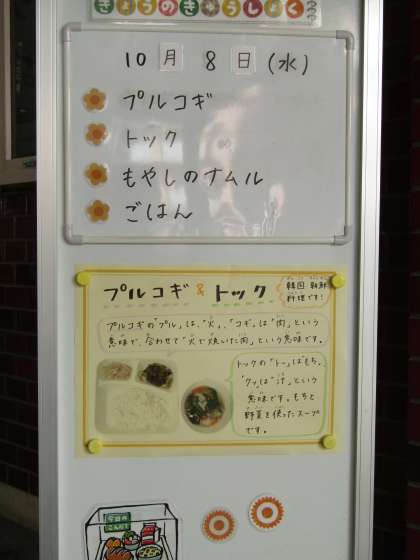 きょうのきゅうしょく
10月 8日(水)
プルコギ
トック
もやしのナムル
ごはん
プルコギ & トック
韓国 朝鮮
料理です!
プルコギの「プル」は、「火」、「コギ」は「肉」という
意味で、合わせて「火で焼いた肉」という意味です。
トックの「トッ」はもち、
「ク」は「汁」という
意味です。もちと
野菜を使ったスープ
です。
今日の
こんだて